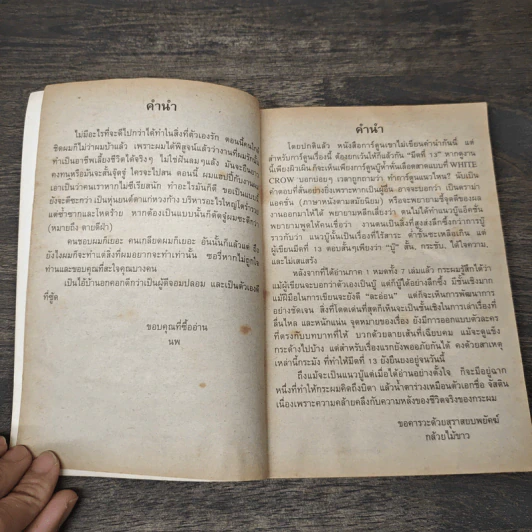 คำนำ
ไม่มีอะไรที่จะดีไปกว่าได้ทำในสิ่งที่ตัวเองรัก ตอนนี้คนใกล้
ชิดผมก็ไม่ว่าผมบ้าแล้ว เพราะผมได้พิสูจน์แล้วว่างานที่ผมรักนั้น
ทำเป็นอาชีพเลี้ยงชีวิตได้จริงๆ ไม่ใช่ฝันลมๆแล้ง มันจะยืน
คงทนหรือมันจะสั้นจู๋จู๋ ใครจะไปสน ตอนนี้ ผมแฮปปี้กับงาน
เอาเป็นว่าคนเราหากไม่ซีเรียสนัก ทำอะไรมันก็ดี ขอเป็นแบบ
ยังจะดีซะกว่า เป็นหุ่นยนต์ตาแก่หวงก้าง บริหารอะไรใหญ่โต
แต่ซ้ำซากและโหดร้าย หากต้องเป็นแบบนั้นกัดตัดจู๋ผมซะดีกว่า
(หมายถึง ตายดีฝ่า)
คนชอบผมก็เยอะ คนเกลียดผมก็เยอะ อันนั้นก็แล้วแต่ ถึง
ยังไงผมก็จะทำแต่สิ่งที่ผมอยากจะทำเท่านั้น ซอรี่หากไม่ถูกใจ
ท่านและขอบคุณที่สะใจคุณบางคน
เป็นไอ้บ้านอกคอกดีกว่าเป็นผู้ดีจอมปลอม และเป็นตัวเองดี
ที่สุ้ด
ขอบคุณที่ซื้ออ่าน
นพ
คำนำ
โดยปกติแล้ว หนังสือการ์ตูนเขาไม่เขียนคำนำกันนี้ แต่
สำหรับการ์ตูนเรื่องนี้ ต้องยกเว้นให้ก็แล้วกัน "มีดที่ 13" หากดูงาน
นี้เพียงผิวเผินก็จะเห็นเพียงการ์ตูนบู๊ห้ำหั่นเลือดสาดแบบที่ WHITE
CROW บอกบ่อยๆ เวลาถูกถามว่า ทำการ์ตูนแนวไหน? นั่นเป็น
คำตอบที่สั้นอย่างยิ่งเพราะหากเป็นผู้อื่น อาจจะบอกว่า เป็นดราม่า
แอคชั่น (ภาษาหนังตามสมัยนิยม) หรือจะพยายามชี้จุดดีของผล
งานออกมาให้ได้ พยายามหลีกเลี่ยงว่า ตนไม่ได้ทำแนวบู๊อีกครั้ง
พยายามพูดให้คนเชื่อว่า งานตนเป็นสิ่งที่สูงส่งลึกซึ้งกว่าการบู๊
ราวกับว่า แนวบู๊นั้นเป็นเรื่องที่ไร้สาระ ต่ำชั้นซะเหลือเกิน แต่
ผู้เขียนมีดที่ 13 ตอบสั้นๆเพียงว่า "บู๊" สั้น, กระชับ, ได้ใจความ,
และไม่เสแสร้ง
หลังจากที่ได้อ่านภาค 1 หมดทั้ง 7 เล่มแล้ว กระผมรู้สึกได้ว่า
แม้ผู้เขียนจะบอกว่าตัวเองเป็นบู๊ แต่ก็บู๊ได้อย่างลึกซึ้ง มีชั้นเชิงมาก
แม้ฝีมือในการเขียนจะยังดี "ละอ่อน" แต่ก็จะเห็นการพัฒนาการ
อย่างชัดเจน สิ่งที่โดดเด่นที่สุดก็เห็นจะเป็นชั้นเชิงในการเล่าเรื่องที่
ลื่นไหล และหนักแน่น จุดหมายของเรื่อง ยังมีการออกแบบตัวละคร
ที่ตรงกับบทบาทที่ให้ บวกด้วยลายเส้นที่เฉียบคม แม้จะดูแข็ง
กระด้างไปบ้าง แต่สำหรับเรื่องแรกยังพอยอภัยกันได้ คงด้วยสาเหตุ
เหล่านี้กระมัง ที่ทำให้มีดที่ 13 ยังยืนยงอยู่จนวันนี้
ถึงแม้จะเป็นแนวบู๊แต่เมื่อได้อ่านอย่างตั้งใจ ก็จะมีอยู่ฉาก
หนึ่งที่ทำให้กระผมคิดถึงบิดา แล้วน้ำตาร่วงเหมือนตัวเอกชื่อ จัสติน
เนื่องเพราะความคล้ายคลึงกับความหลังของชีวิตจริงของกระผม
ขอคารวะด้วยสุราสยบพยัคฆ์
กล้วยไม้ขาว